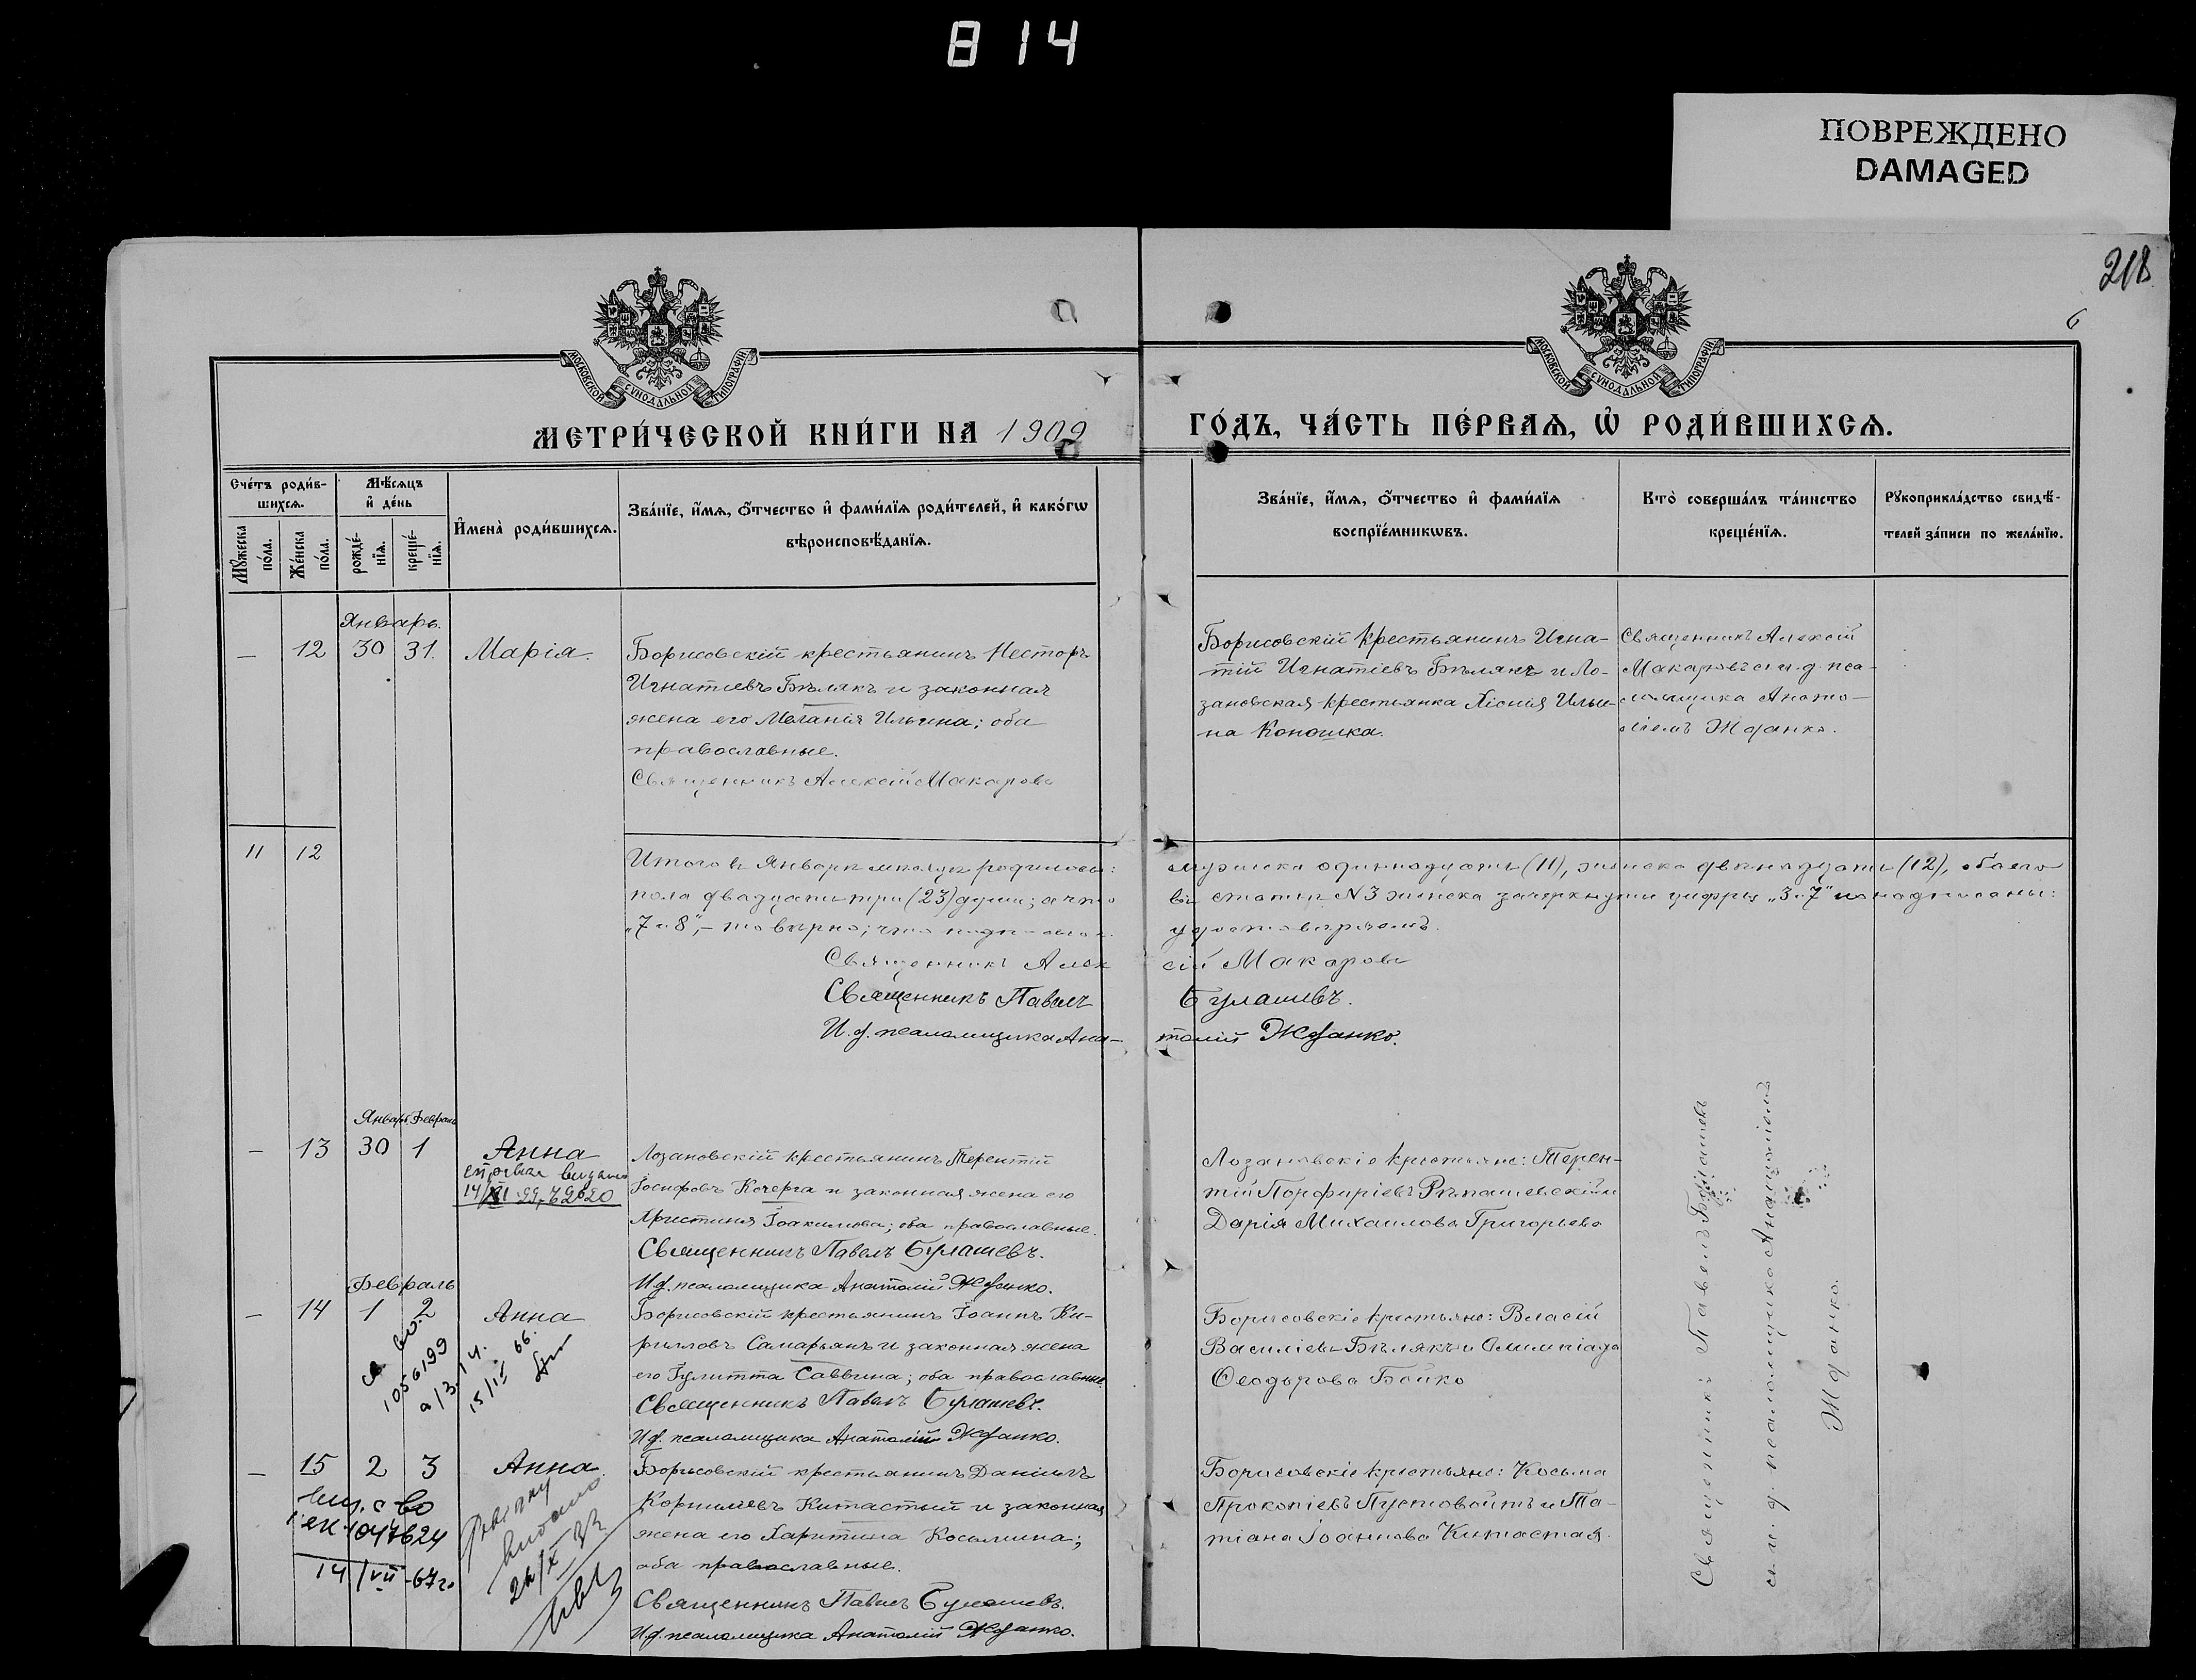 814
ПОВРЕЖДЕНО
DAMAGED
218
6
МОСКОВСКОЙ СѴНОДАЛЬНОЙ ТИПОГРАФІИ
МОСКОВСКОЙ СѴНОДАЛЬНОЙ ТИПОГРАФІИ
МЕТРИ́ЧЕСКОЙ КНИ́ГИ НА 1909 ГО́ДЪ, ЧА́СТЬ ПЕ́РВАѦ, Ѽ РОДИ́ВШИХСѦ.
Сче́тъ роди́в-
шихсѧ.
Мꙋ́жеска по́ла.
Же́нска по́ла.
Мѣ́сѧцъ
и҆ де́нь
рожде́-
нїѧ.
креще́-
нїѧ.
И҆мена̀ роди́вшихсѧ.
Зва́нїе, и҆́мѧ, ѻ҆́тчество и҆ фами́лїѧ роди́телей, и҆ како́гѡ
вѣроисповѣ́данїѧ.
Зва́нїе, и҆́мѧ, ѻ҆́тчество и҆ фами́лїѧ
воспрїе́мникѡвъ.
Кто̀ соверша́лъ та́инство
креще́нїѧ.
Рꙋкоприкла́дство свидѣ́-
телей за́писи по жела́нїю.
Январь.
— 12 30 31. Марія.
Борисовскій крестьянинъ Несторъ
Игнатіевъ Бѣлякъ и законная
жена его Меланія Ильина; оба
православные.
Священникъ Алексій Макаровъ
Борисовскій крестьянинъ Игна-
тій Игнатіевъ Бѣлякъ и Ло-
зановская крестьянка Ксенія Ильи-
на Коношка.
Священникъ Алексій
Макаровъ съ и.д. пса-
ломщика Анато-
ліемъ Жданко.
11 12
Итого въ Январѣ мѣсяцѣ родилось: мужеска одиннадцать (11), женска двѣнадцать (12), обоего
пола двадцать три (23) души; а что въ статьѣ N3 женска зачеркнуты цифры „3 и 7" и надписаны:
„7 и 8",– то вѣрно; удостовѣряемъ.
Священникъ Алексій Макаровъ
Священникъ Павелъ Булашевъ.
И.д. псаломщика Анатолій Жданко.
Январь Февраль
— 13 30 1 Анна
14/XI
Лозановскій крестьянинъ Терентій
Іосифовъ Кочерга и законная жена его
Христина Іоакимова; оба православные.
Священникъ Павелъ Булашевъ.
И.д. псаломщика Анатолій Жданко.
Лозановскіе крестьяне: Терен-
тій Порфиріевъ Рѣпашевскій и
Дарія Михаилова Григорьева
Февраль
— 14 1 2 Анна
1056199
15/IV 66.
Борисовскій крестьянинъ Іоаннъ Ки-
рилловъ Самарьянъ и законная жена
его Іулитта Саввина; оба православные.
Священникъ Павелъ Булашевъ.
И.д. псаломщика Анатолій Жданко.
Борисовскіе крестьяне: Власій
Василіевъ Бѣлякъ и Олимпіада
Ѳеодорова Бойко
— 15 2 3 Анна.
1047624
14/VII-67г.
Борисовскій крестьянинъ Даніилъ
Корниліевъ Китастый и законная
жена его Харитина Косьмина;
оба православные.
Священникъ Павелъ Булашевъ.
И.д. псаломщика Анатолій Жданко.
Борисовскіе крестьяне: Косьма
Прокопіевъ Пустовойтъ и Та-
тіана Іоаннова Китастая.
Священникъ Павелъ Булашевъ
съ и. д. псаломщика Анатоліемъ
Жданко.